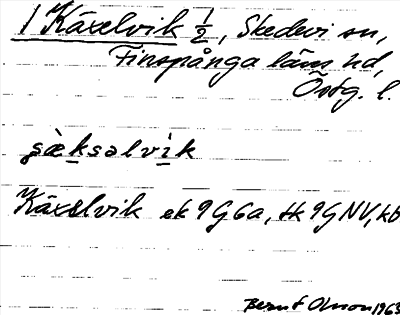 1 Käxelvik 1/2, Skedevi sn,
Finspånga läns hd,
Östg. l.
çæ̀ksəlvik
Käxelvik ek 9G6a, tk 9G NV, kb
Bernt Olsson 1963